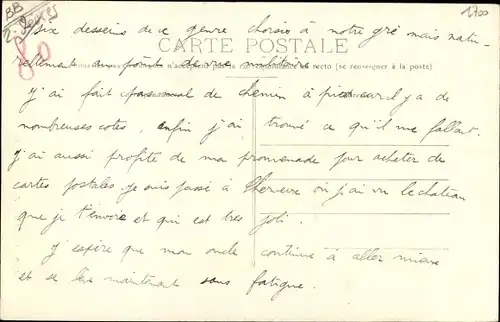 BB
2 Sèvres
80
1700
dix dessins de ce genre choisis à notre gré mais natu-
CARTE POSTALE
rellement au point de vue militaire
recto (se renseigner à la poste)
J'ai fait pas mal de chemin à pied car il y a de
nombreuses cotes, enfin j'ai trouvé ce qu'il me fallait.
J'ai aussi profité de ma promenade pour acheter des
cartes postales. Je suis passé à où j'ai vu le château
que je t'envoie et qui est très joli.
J'espère que mon oncle continue à aller mieux
et se lève maintenant sans fatigue.